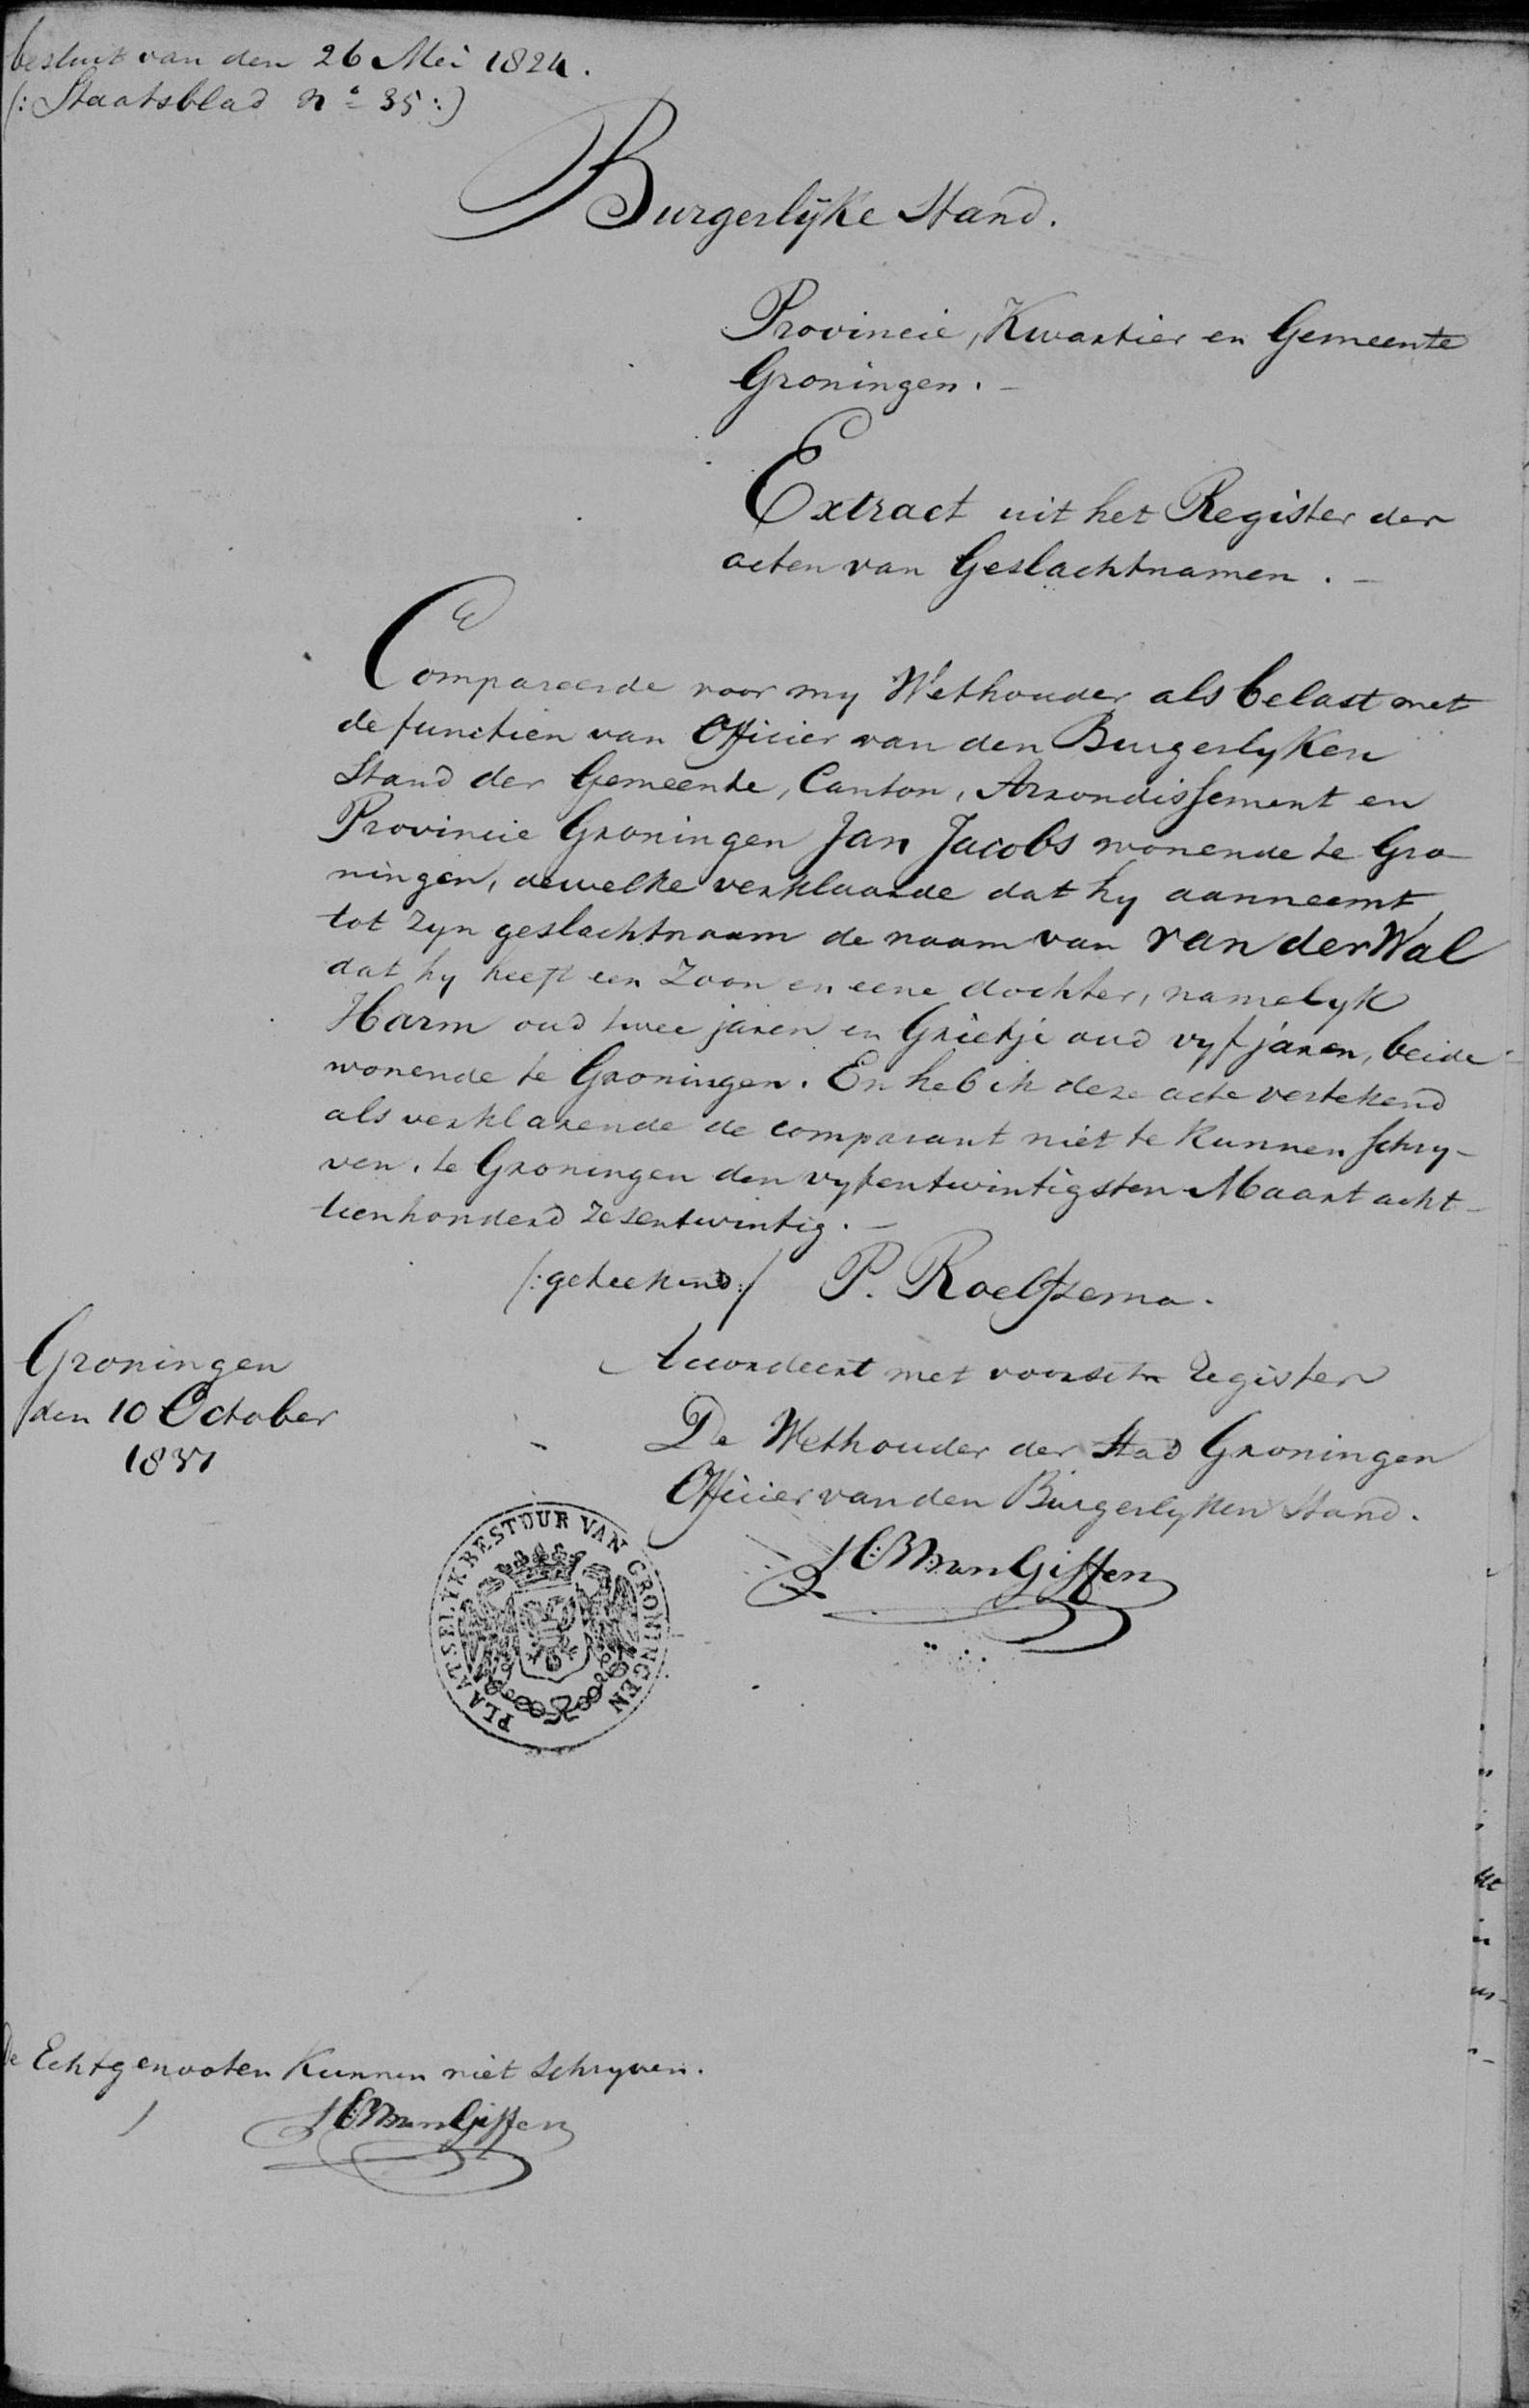 besluit van den 26 Mei 1824.
(: Staatsblad No 35 :)
Burgerlyke Stand.
Provincie, Kwartier en Gemeente
Groningen. -
Extract uit het Register der
acten van Geslachtnamen. -
Compareerde voor my Wethouder als belast met
de functien van Officier van den Burgerlyken
Stand der Gemeente, Canton, Arrondissement en
Provincie Groningen Jan Jacobs wonende te Gro-
ningen, dewelke verklaarde dat hy aanneemt
tot zyn geslachtnaam de naam van van der Wal
dat hy heeft een Zoon en eene dochter, namelyk
Harm oud twee jaren en Grietje oud vyf jaren, beide
wonende te Groningen. En heb ik deze acte vertekend
als verklarende de comparant niet te kunnen schry-
ven. te Groningen den vyfentwintigsten Maart acht-
tienhonderd zesentwintig. -
(: geteekend :) P. Roeltsema.
Groningen
den 10 October
Accordeert met voorsch. Register
De Wethouder der Stad Groningen
Officier van den Burgerlyken Stand.
van Giffen
PLAATSELYK BESTUUR VAN GRONINGEN
De Echtgenooten kunnen niet schryven.
van Giffen